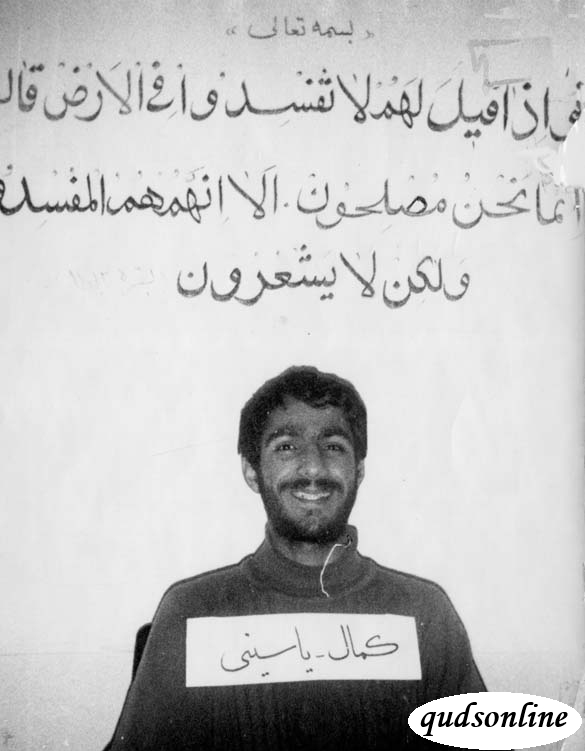 « بسمه تعالی »
وَاِذا قیلَ لَهُمْ لا تُفْسِدُوا فِی الاَرْضِ قال
اِنَّما نَحْنُ مُصْلِحُونَ. اَلا اِنَّهُمْ هُمُ المُفْسِد
وَلکِنْ لا یَشْعُرُونَ
کمال - یاسینی
qudsonline